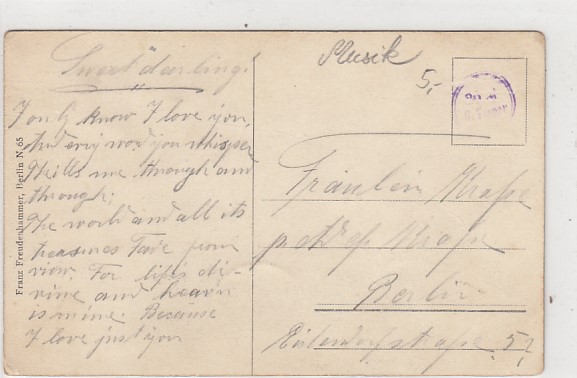 Sweet darling!
I only know I love you,
And every word you whisper
Thrills me through and
through;
The world and all its
treasures Fade from
view. For life is di-
vine and heav'n
is mine. Because
I love just you
Franz Freudenhammer, Berlin N 65
Musik
5,-
Fräulein
Berlin
52